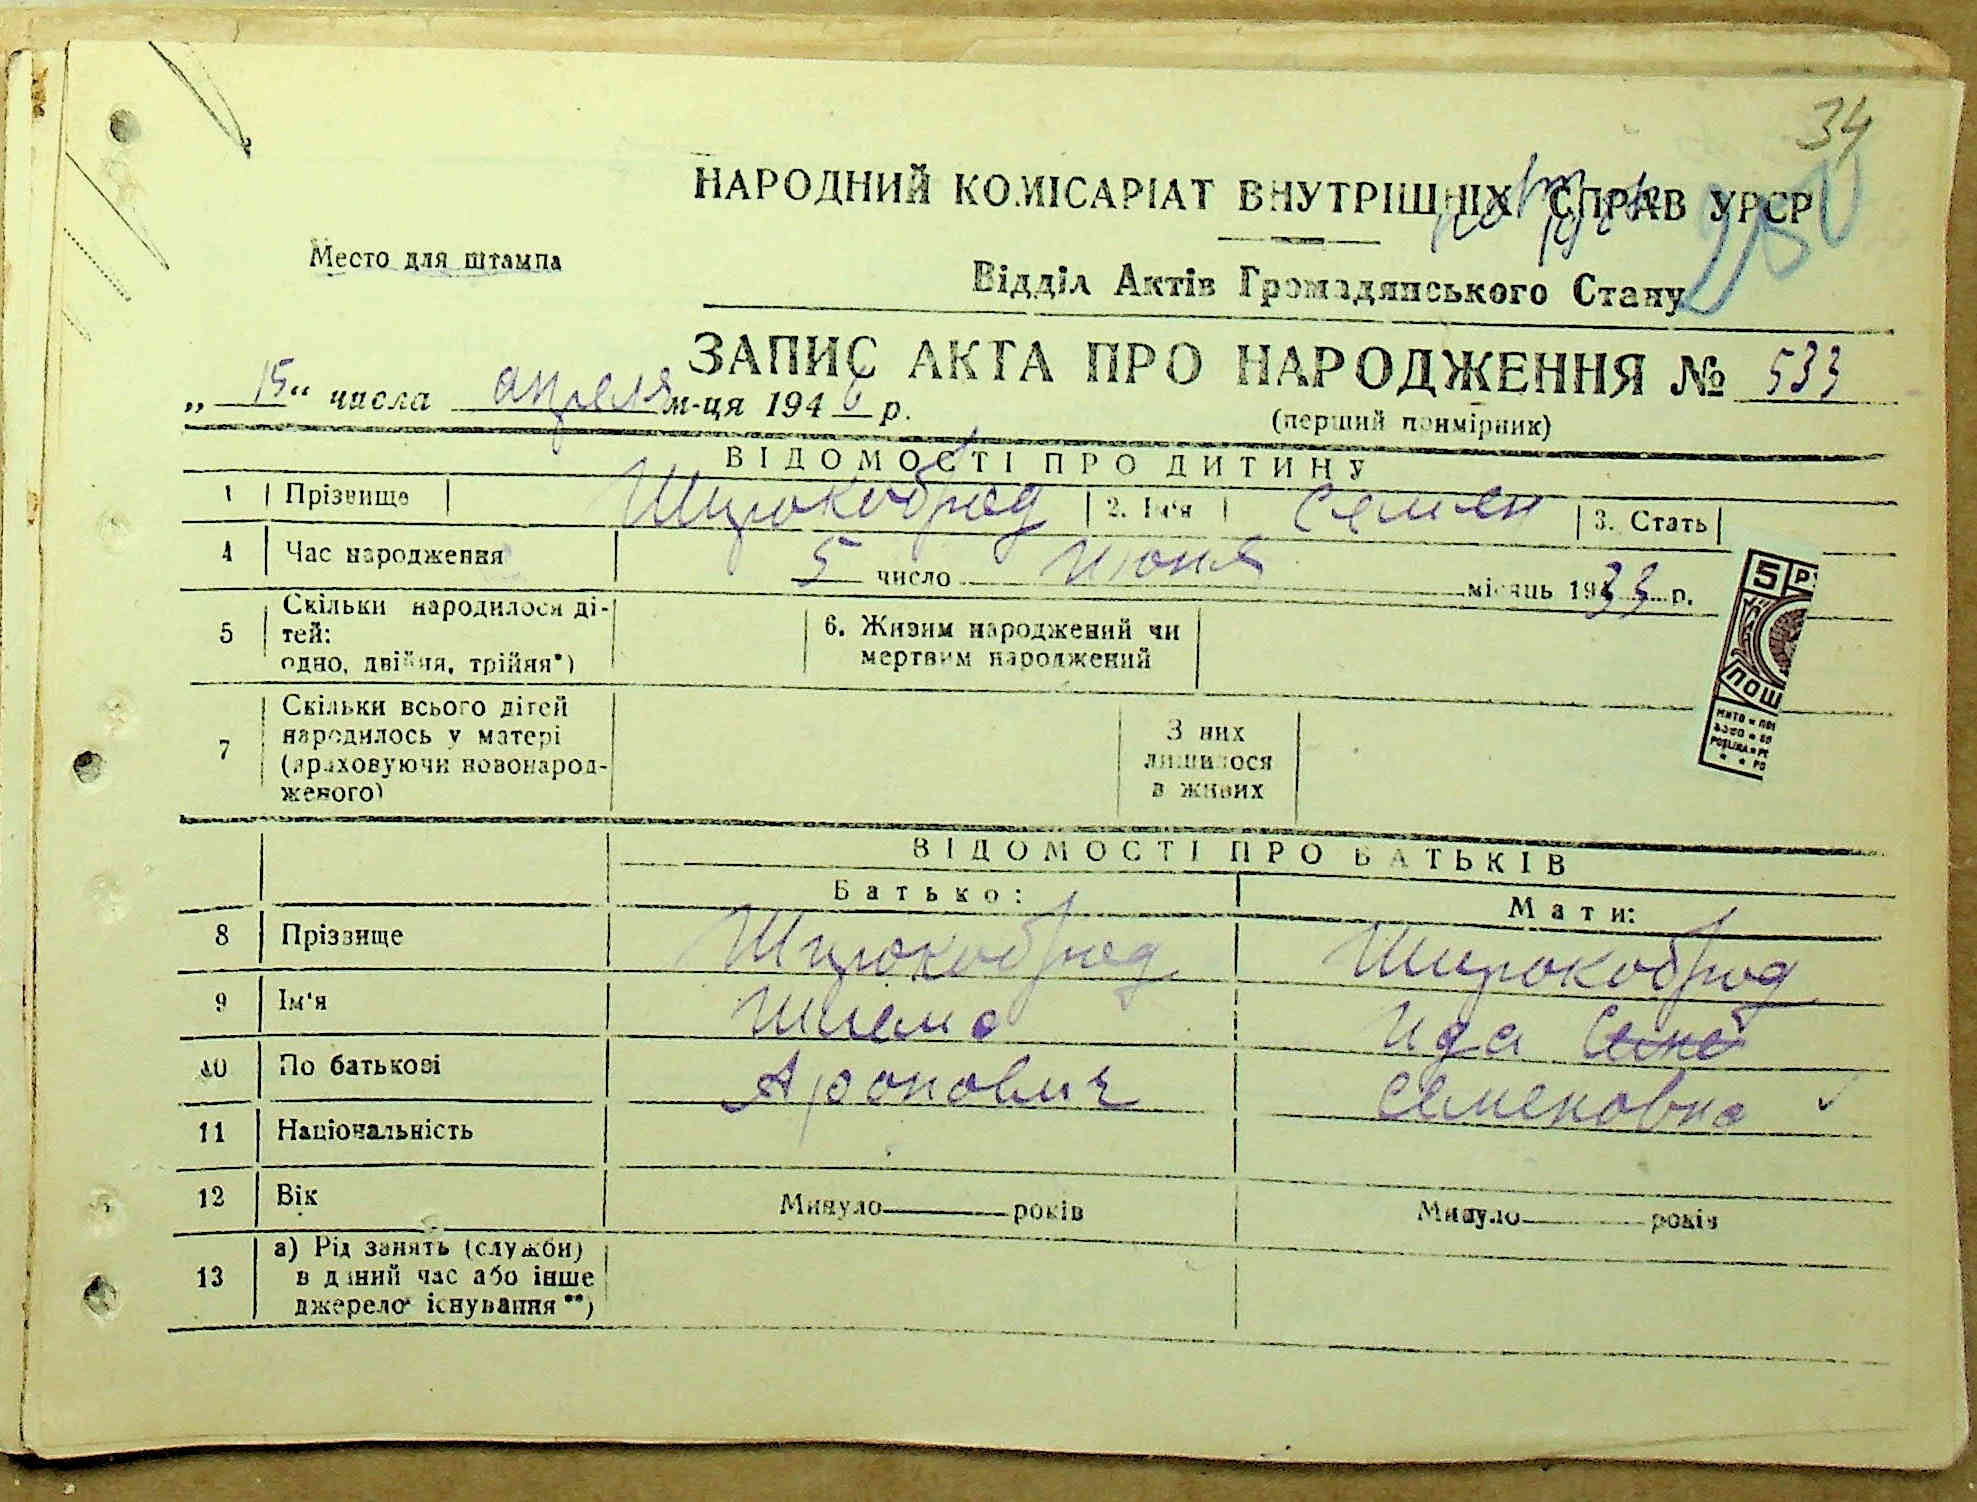 34
250
НАРОДНИЙ КОМІСАРІАТ ВНУТРІШНІХ СПРАВ УРСР
Место для штампа
Відділ Актів Громадянського Стану
ЗАПИС АКТА ПРО НАРОДЖЕННЯ № 533
„15“ числа апреля м-ця 1946 р.
(перший примірник)
ВІДОМОСТІ ПРО ДИТИНУ
1 Прізвище Широкоброд 2. Ім'я Семен 3. Стать
4 Час народження 5 число июня місяць 1933 р.
5 Скільки народилося ді-
тей:
одно, двійня, трійня*)
6. Живим народжений чи
мертвим народжений
7 Скільки всього дітей
народилось у матері
(враховуючи новонарод-
женого)
З них
лишилося
в живих
5 РУ
ПОШ
ВІДОМОСТІ ПРО БАТЬКІВ
Батько: Мати:
8 Прізвище Широкоброд Широкоброд
9 Ім'я Шлема Ида
10 По батькові Аронович Семеновна
11 Національність
12 Вік Минуло років Минуло років
13 а) Рід занять (служби)
в даний час або інше
джерело існування**)